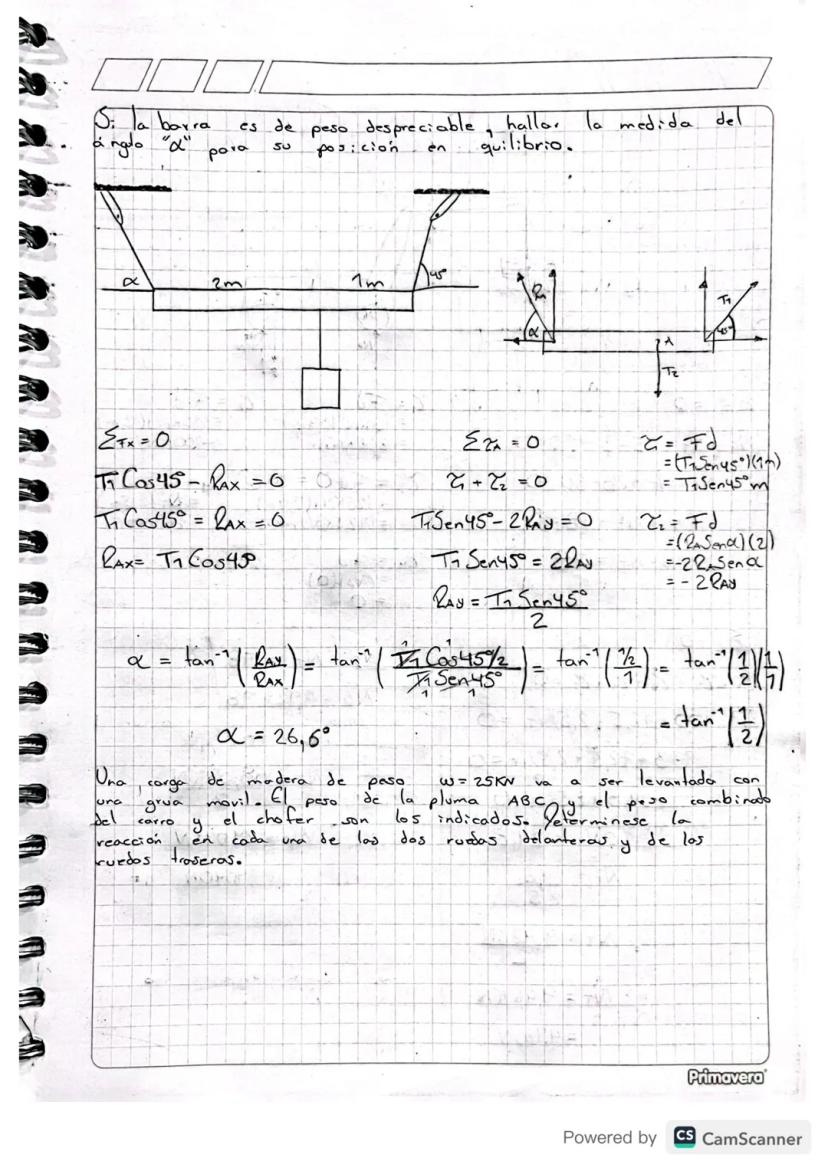 Si la barra es de peso despreciable, hallar la medida del
ángulo "α" para su posición en quilibrio.
α 2m 1m 45°
RA α T1 45°
A
T2
ΣFx = 0 ΣτA = 0 τ = Fd
= (T1Sen45°)(1m)
T1Cos45° - RAX = 0 τ1 + τ2 = 0 = T1Sen45°m
T1Cos45° = RAX = 0 T1Sen45° - 2RAy = 0 τ2 = Fd
= (RASenα)(2)
RAX = T1Cos45° T1Sen45° = 2RAy = -2RASenα
= -2RAy
RAy = T1Sen45°/2
α = tan⁻¹(RAy/RAX) = tan⁻¹(T1Cos45°/2 / T1Sen45°) = tan⁻¹(1/2 / 1) = tan⁻¹(1/2)(1/1)
= tan⁻¹(1/2)
α = 26,6°
Una carga de madera de peso w = 25KN va a ser levantada con
una grua movil. El peso de la pluma ABC y el peso combinado
del carro y el chofer son los indicados. Determinese la
reacción en cada una de las dos ruedas delanteras y de los
ruedos traseras.
Primavera
Powered by CS CamScanner